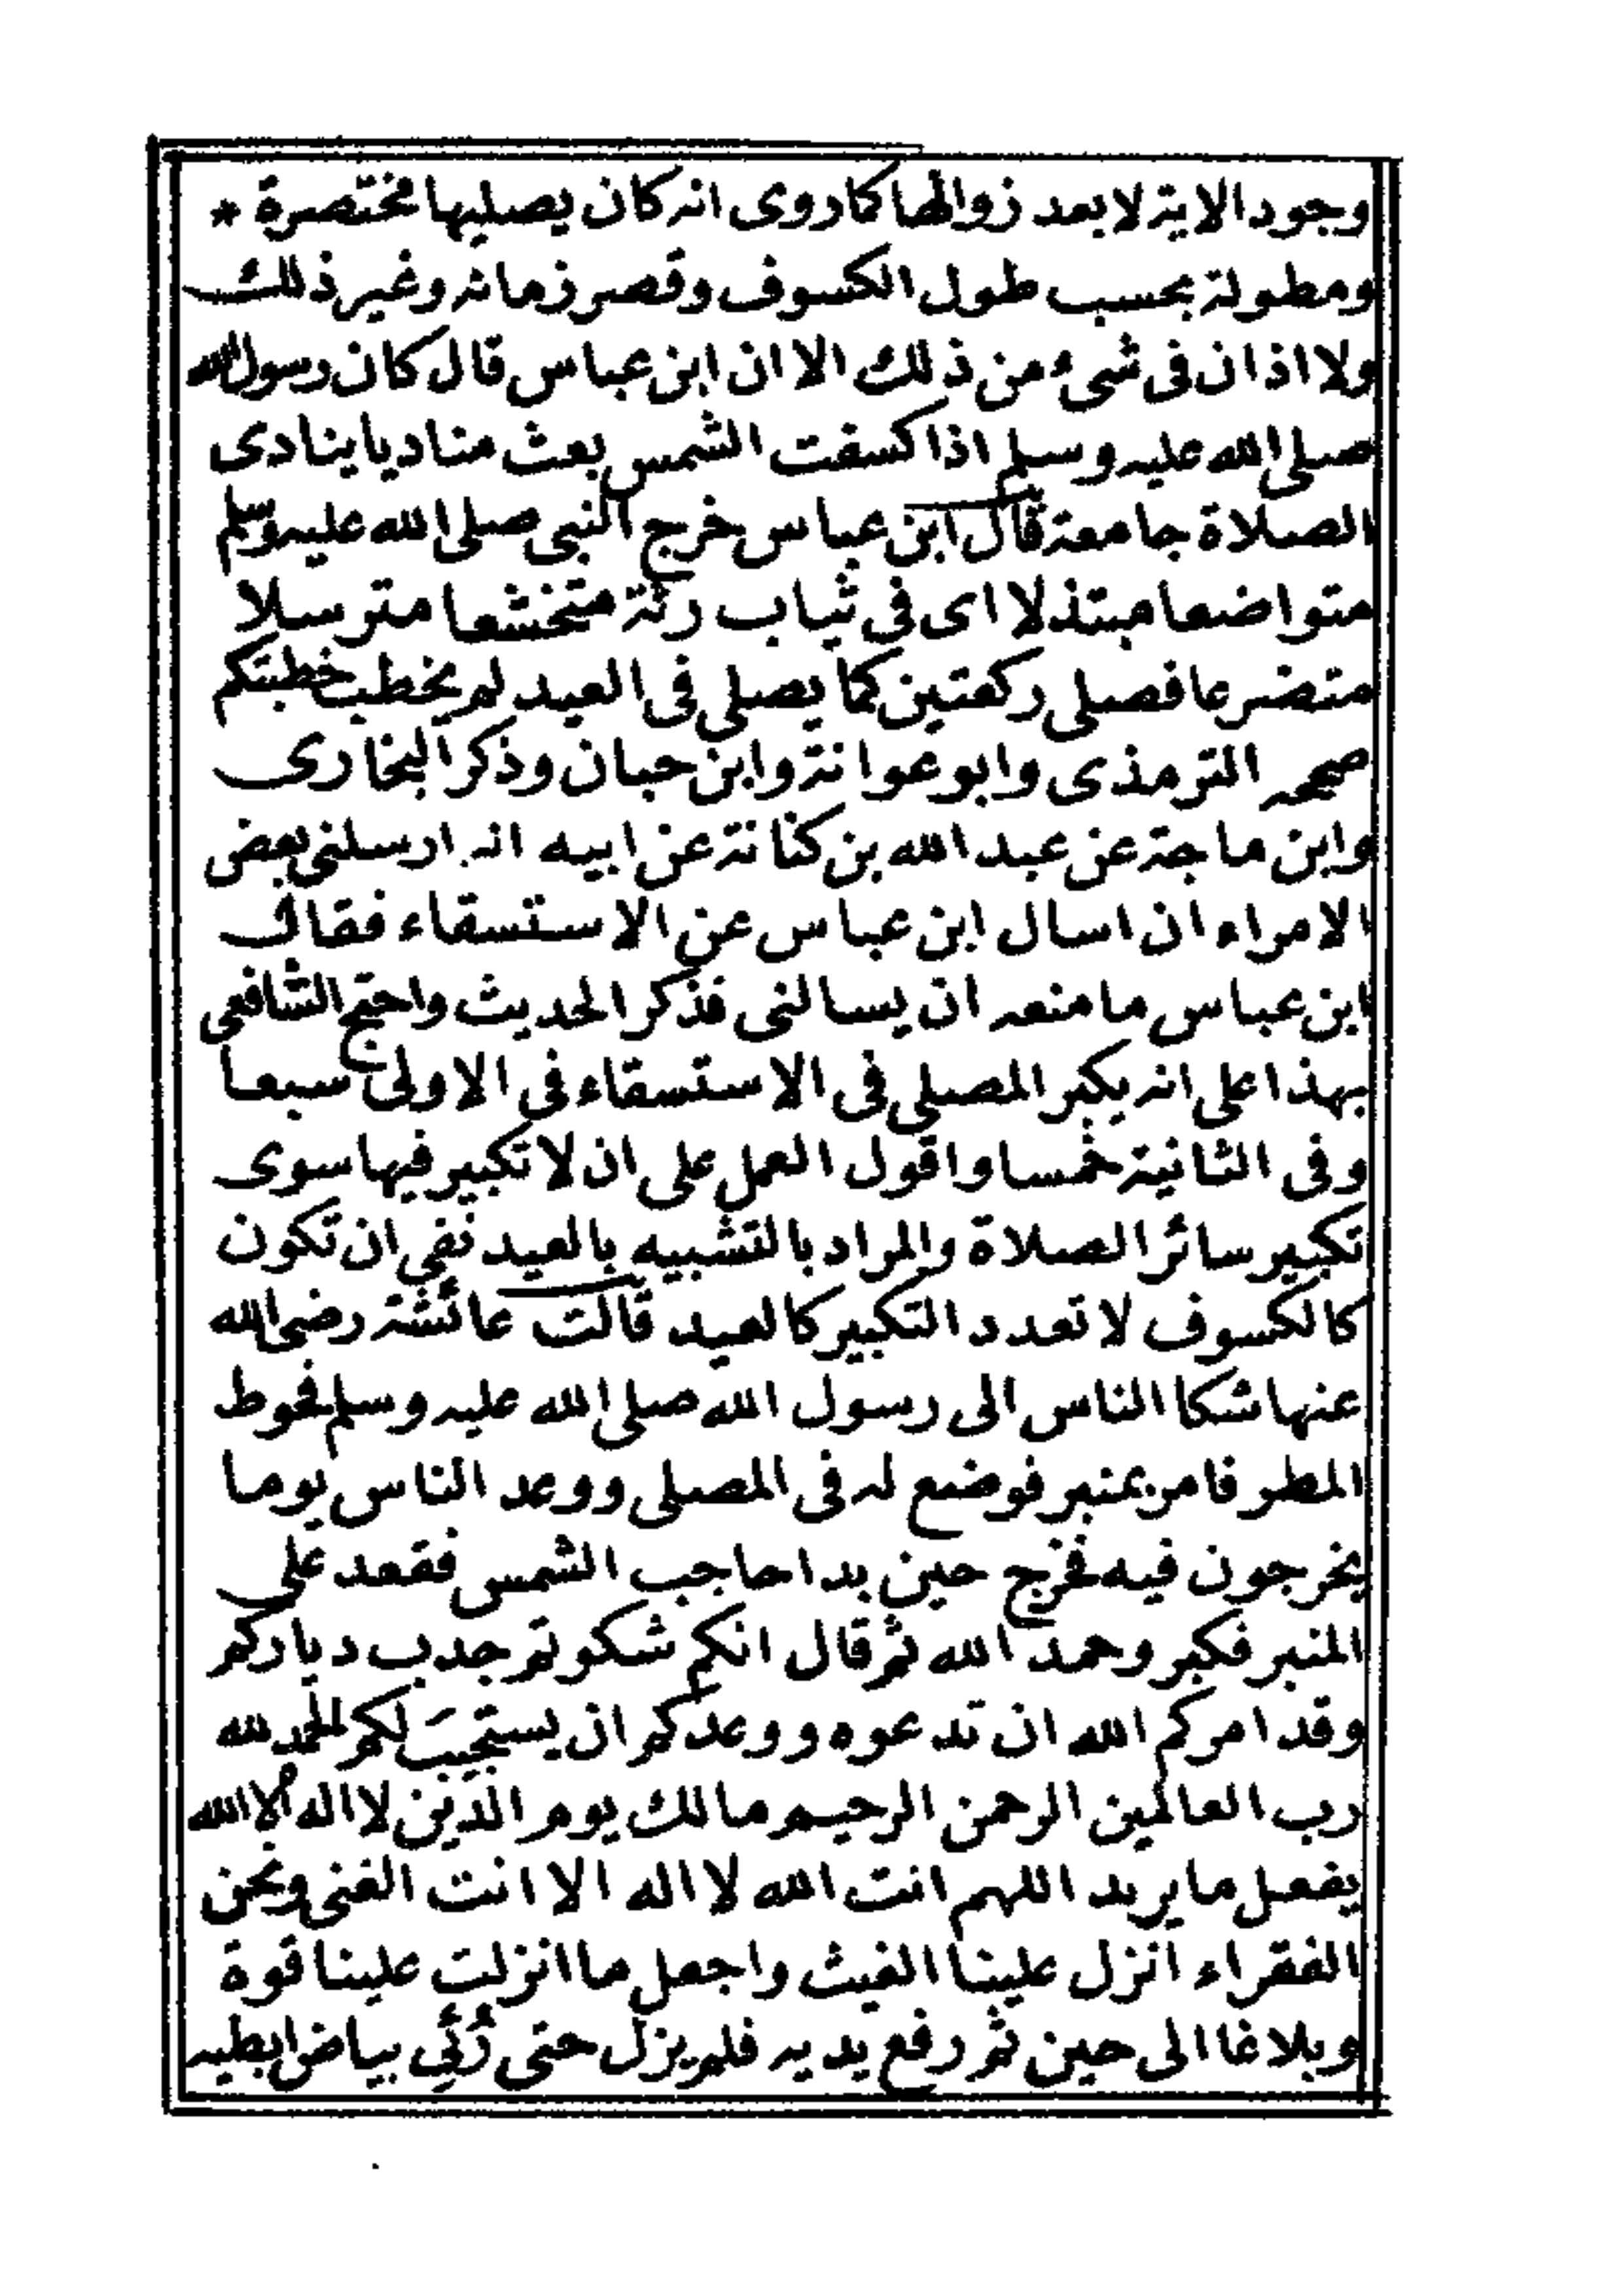 وجود الاية لا بعد زوالها كما روى انه كان يصليها مختصرة *
ومطولة بحسب طول الكسوف وقصر زمانه وغير ذلك
ولا اذان فى شىء من ذلك الا ان ابن عباس قال كان رسول الله
صلى الله عليه وسلم اذا كسفت الشمس بعث مناديا ينادى
الصلاة جامعة قال ابن عباس خرج النبى صلى الله عليه وسلم
متواضعا مبتذلا اى فى ثياب رثة متخشعا مترسلا
متضرعا فصلى ركعتين كما يصلى فى العيد لم يخطب خطبتكم
صححه الترمذى وابو عوانة وابن حبان وذكر البخارى
وابن ماجة عن عبد الله بن كنانة عن ابيه انه ارسلنى بعض
الامراء ان اسال ابن عباس عن الاستسقاء فقال
ابن عباس ما منعه ان يسالنى فذكر الحديث واحتج الشافعى
بهذا على انه يكبر المصلى فى الاستسقاء فى الاولى سبعا
وفى الثانية خمسا واقول العمل على ان لا تكبير فيها سوى
تكبير سائر الصلاة والمراد بالتشبيه بالعيد نفى ان تكون
كالكسوف لا تعدد التكبير كالعيد قالت عائشة رضى الله
عنها شكا الناس الى رسول الله صلى الله عليه وسلم قحوط
المطر فامر بمنبر فوضع له فى المصلى ووعد الناس يوما
يخرجون فيه فخرج حين بدا حاجب الشمس فقعد على
المنبر فكبر وحمد الله ثم قال انكم شكوتم جدب دياركم
وقد امركم الله ان تدعوه ووعدكم ان يستجيبَ لكم الحمد لله
رب العالمين الرحمن الرحيم مالك يوم الدين لا اله الا الله
يفعل ما يريد اللهم انت الله لا اله الا انت الغنى ونحن
الفقراء انزل علينا الغيث واجعل ما انزلت علينا قوة
وبلاغا الى حين ثم رفع يديه فلم يزل حتى رُئي بياض ابطيه